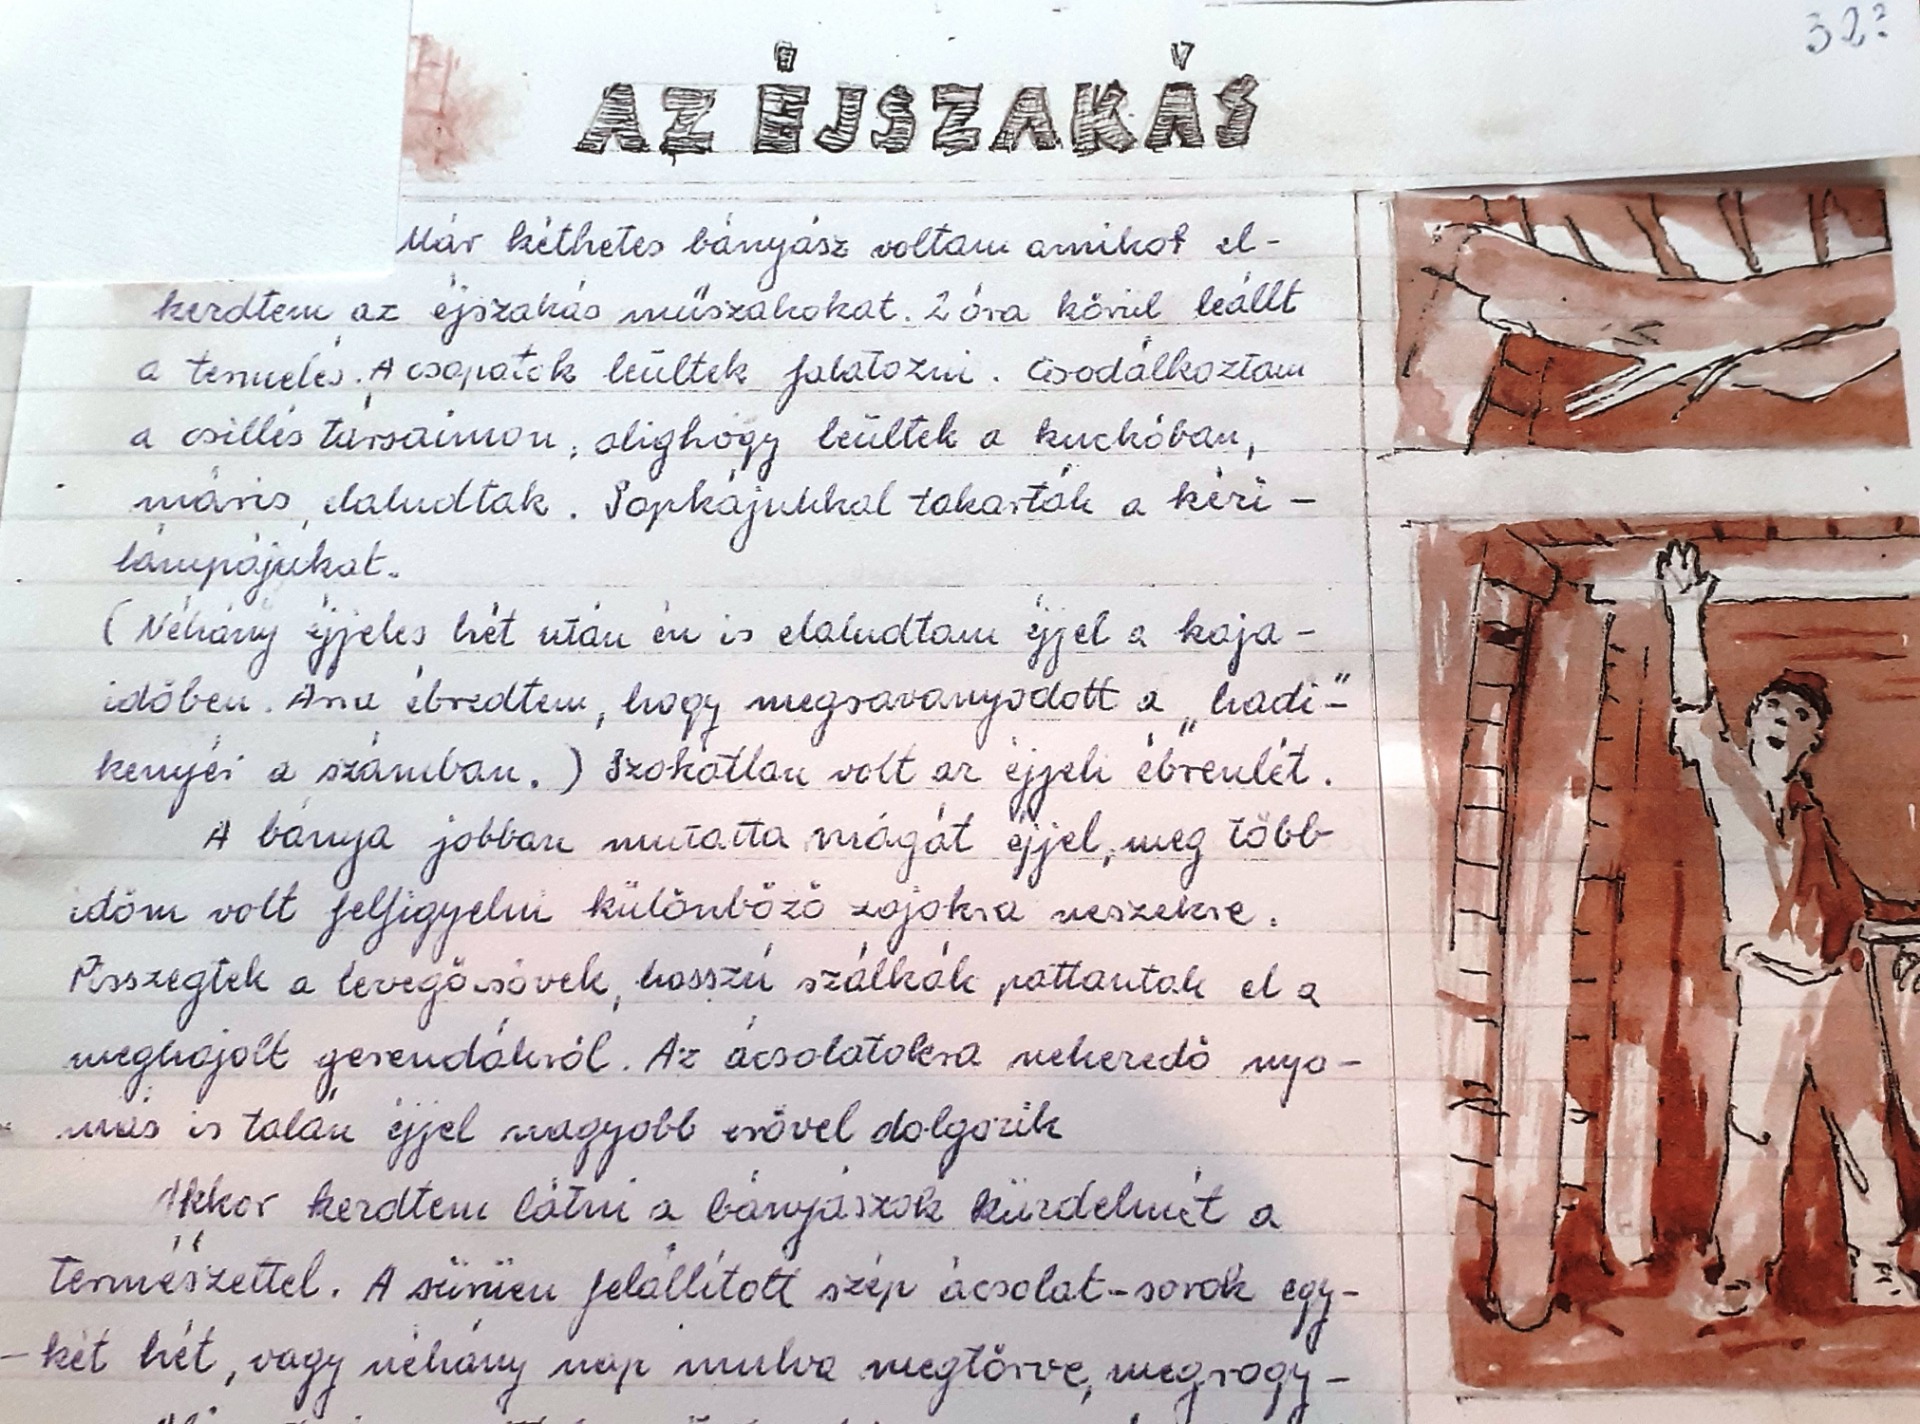 32?
AZ ÉJSZAKÁS
Már kéthetes bányász voltam amikor el-
kezdtem az éjszakás műszakokat. 2 óra körül leállt
a termelés. A csapatok leültek falatozni. Csodálkoztam
a csillés társaimon, alighogy leültek a kuckóban,
máris elaludtak. Sapkájukkal takarták a kézi-
lámpájukat.
(Néhány éjjeles hét után én is elaludtam éjjel a kaja-
időben. Arra ébredtem, hogy megsavanyodott a „hadi-"
kenyér a számban.) Szokatlan volt az éjjeli ébrenlét.
A bánya jobban mutatta magát éjjel, meg több
időm volt felfigyelni különböző zajokra neszekre.
Pisszegtek a levegőcsövek, hosszú szálkák pattantak el a
meghajolt gerendákról. Az ácsolatokra nehezedő nyo-
más is talán éjjel nagyobb erővel dolgozik
Akkor kezdtem látni a bányászok küzdelmét a
természettel. A sűrűen felállított szép ácsolat-sorok egy-
-két hét, vagy néhány nap mulva megtörve, megrogy-